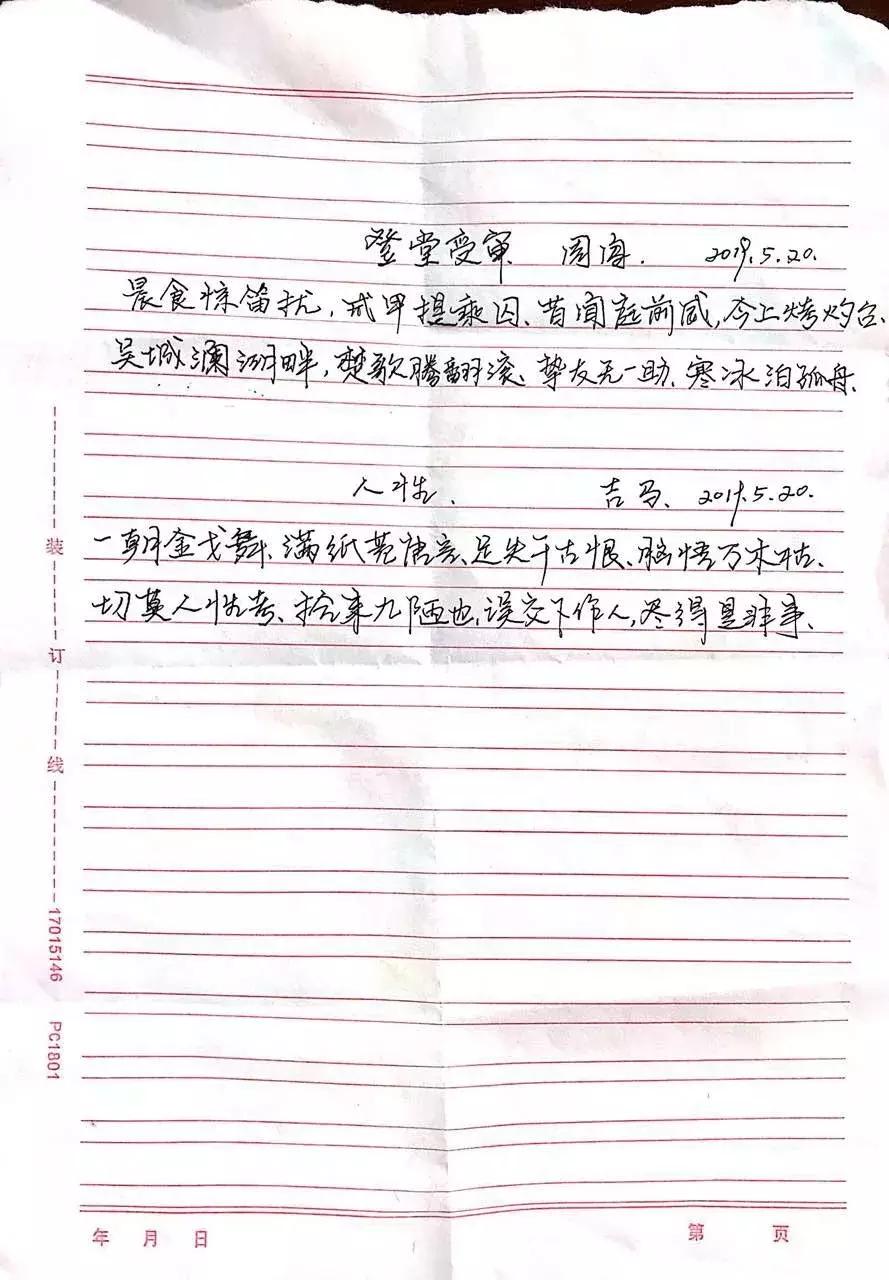 登堂受审 周海. 2019.5.20.
晨食惊笛扰,戒甲提乘囚、昔闻庭前威,今上烤灼台、
吴城澜湖畔,楚歌腾翻滚、挚友无一助、寒冰泊孤舟、
人性、 吉马、2019.5.20.
一朝金戈舞、满纸荒唐言、足失千古恨、脑悟万木枯、
切莫人性考、拾来九陋也,误交下作人,尽得是非事、
装
订
线
17015146 PC1801
年 月 日 第 页